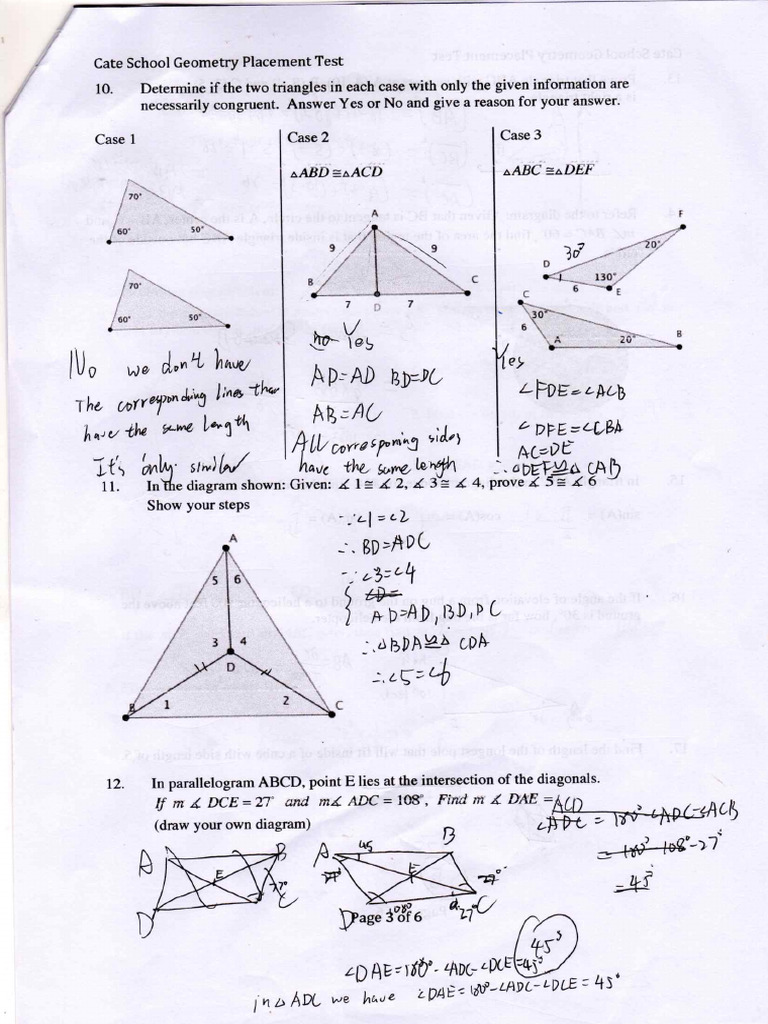 Cate School Geometry Placement Test
10. Determine if the two triangles in each case with only the given information are
necessarily congruent. Answer Yes or No and give a reason for your answer.
Case 1
70°
60° 50°
70°
60° 50°
No we don't have
The corresponding lines that
have the same length
It's only similar
Case 2
△ABD ≅ △ACD
A
9 9
B C
7 D 7
Yes
AD=AD BD=DC
AB=AC
All corresponing sides
have the same length
Case 3
△ABC ≅ △DEF
F
30° 20°
D 130°
6 E
C
30°
6
A 20° B
Yes
∠FDE=∠ACB
∠DFE=∠CBA
AC=DE
∴△DEF≌△CAB
11. In the diagram shown: Given: ∡ 1 ≅ ∡ 2, ∡ 3 ≅ ∡ 4, prove ∡ 5 ≅ ∡ 6
Show your steps
A
5 6
3 4
D
1 2
B C
∵∠1=∠2
∴BD=ADC
∵∠3=∠4
∠D=
AD=AD, BD, DC
∴△BDA≌△CDA
∴∠5=∠6
12. In parallelogram ABCD, point E lies at the intersection of the diagonals.
If m ∡ DCE = 27° and m∡ ADC = 108°, Find m ∡ DAE =
(draw your own diagram)
ACD
∠ADC = 180°-∠ADC-∠ACB
= 180°-108°-27°
=45°
A B
E
27°
D C
A 45 B
E
27°
D 108° 27° C
Page 3 of 6
45°
∠DAE=180°-∠ADC-∠DCE=45°
in△ADC we have ∠DAE=180°-∠ADC-∠DCE=45°